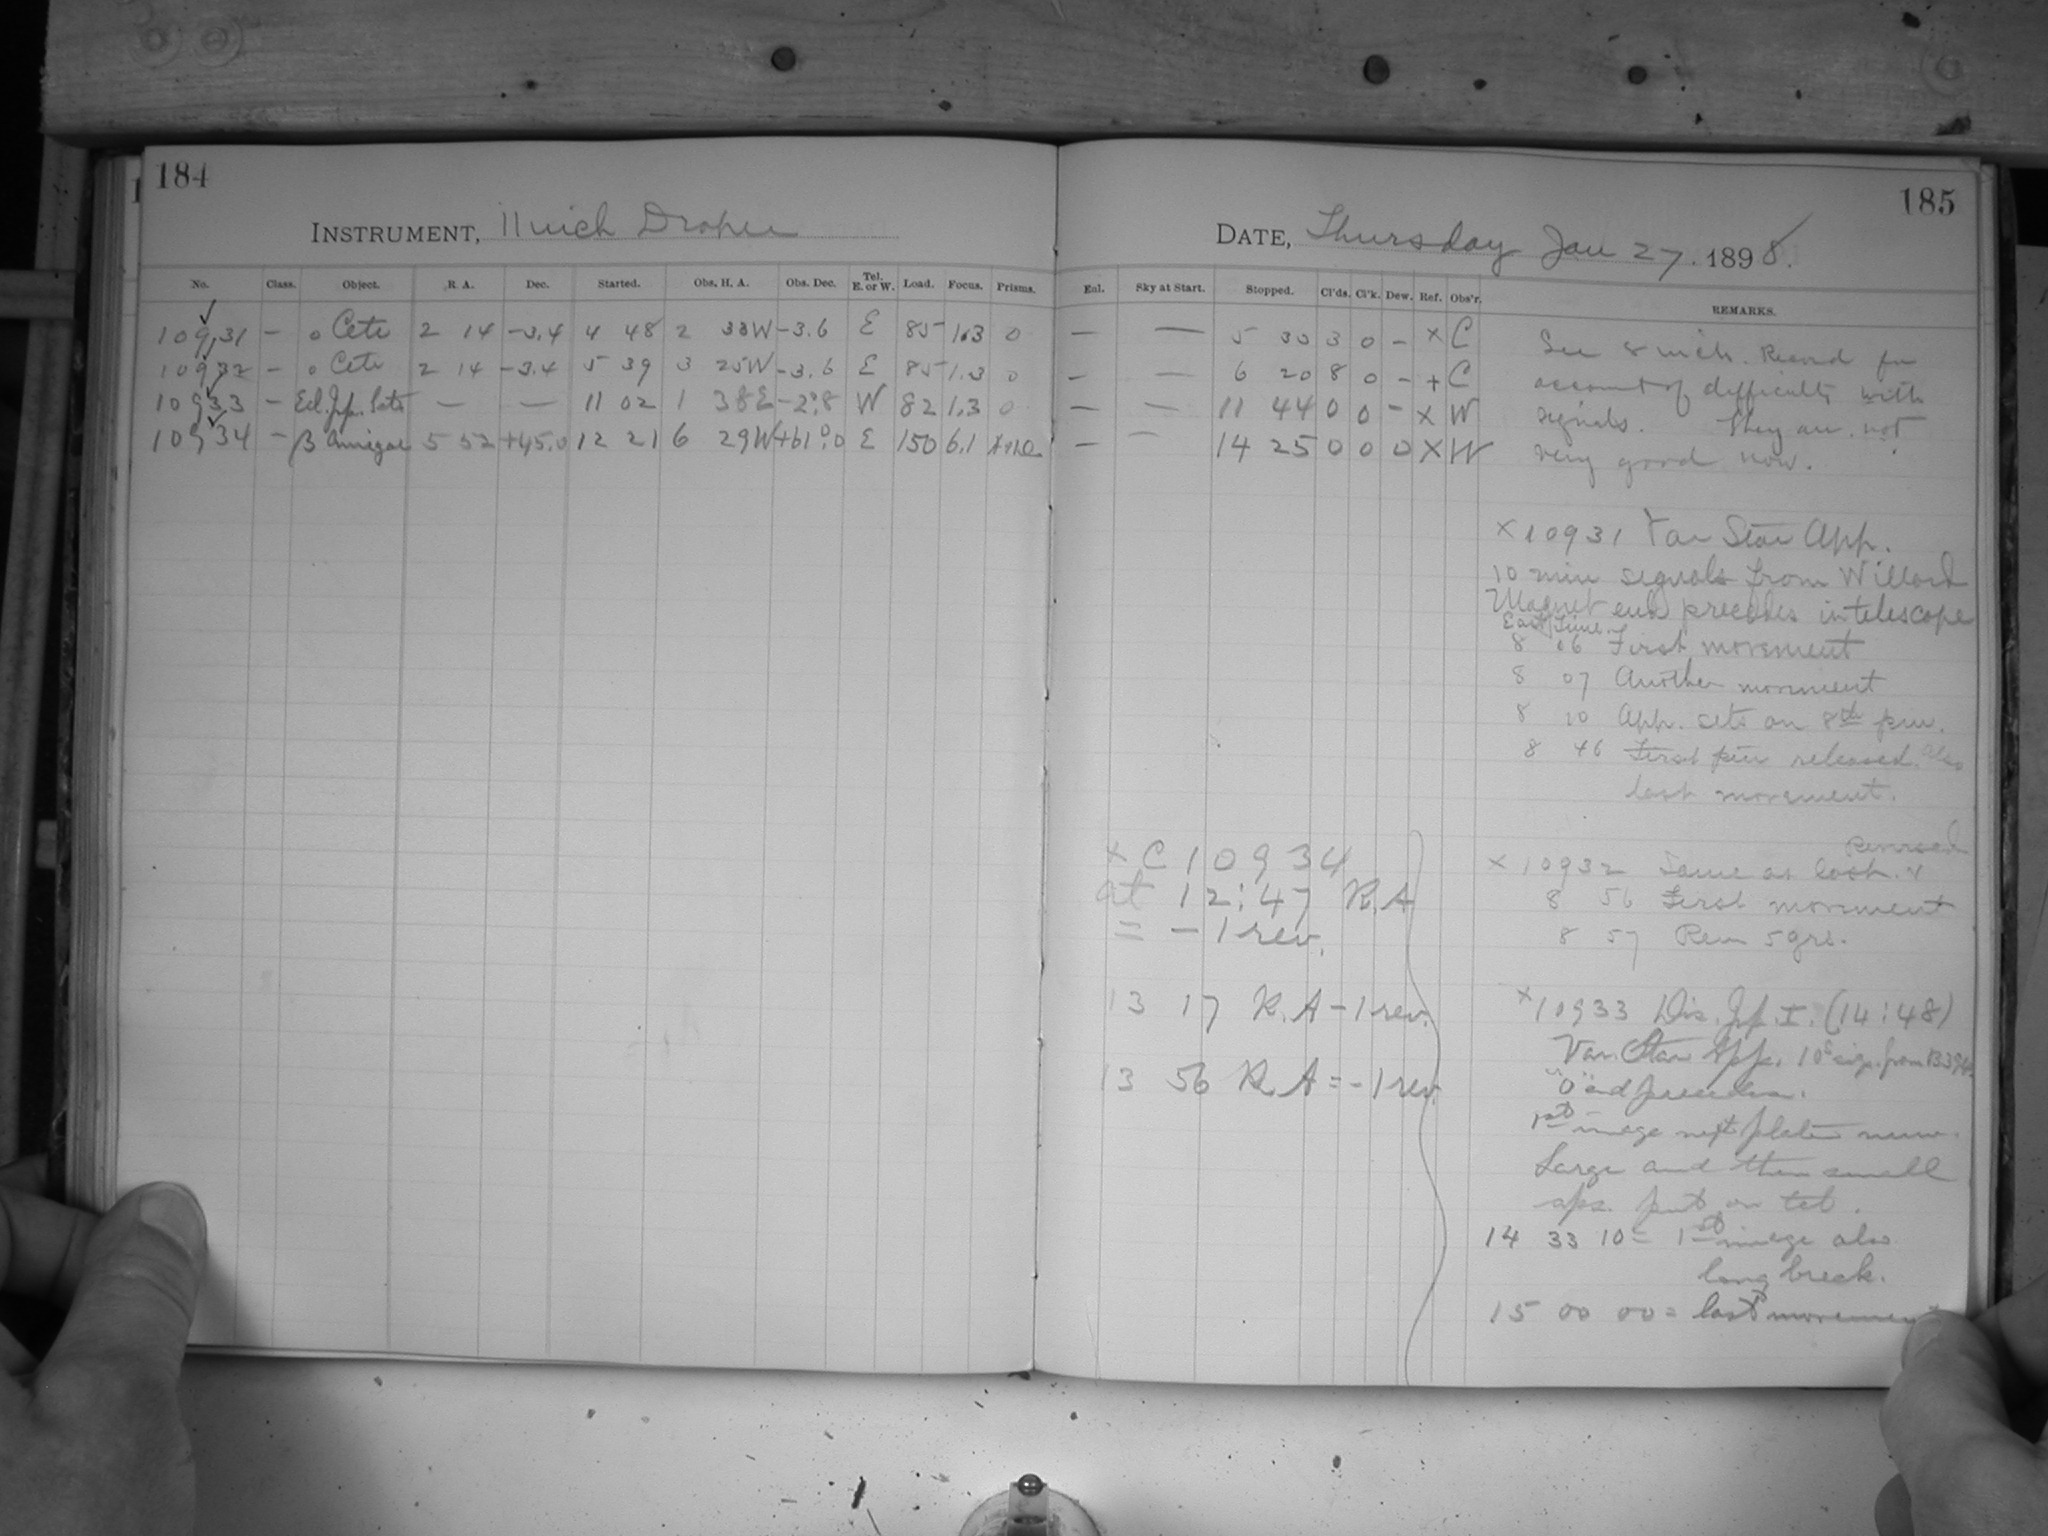 184
INSTRUMENT, 11 inch Draper
No. Class. Object. R. A. Dec. Started. Obs. H. A. Obs. Dec. Tel. E. or W. Load. Focus. Prisms.
10931 – o Ceti 2 14 –3.4 4 48 2 33W –3.6 E 85 1.3 0
10932 – o Ceti 2 14 –3.4 5 39 3 25W –3.6 E 85 1.3 0
10933 – Ecl. Jup. Sats — — 11 02 1 38E –2°.8 W 82 1.3 0
10934 – β Aurigae 5 52 +45.0 12 21 6 29W +61°.0 E 150 6.1
185
DATE, Thursday Jan 27. 1898.
Enl. Sky at Start. Stopped. Cl'ds. Cl'k. Dew. Ref. Obs'r. REMARKS.
— — 5 30 3 0 – x C
— — 6 20 8 0 – + C
— — 11 44 0 0 – x W
— — 14 25 0 0 0 X W
See 8 inch. Record for
account of difficulty with
signals. They are not
very good now.
x 10931 Var Star App.
10 min signals from Willard
Magnet end precedes in telescope
East Time
8 06 First movement
8 07 Another movement
8 10 App. sets on 8th pin.
8 46 First pin released. Also
last movement.
x 10932 Same as last. Reversed
8 56 First movement
8 57 Rem 5 grs.
x C 10934
at 12:47 R.A
= – 1 rev.
13 17 R.A – 1 rev.
13 56 R.A = – 1 rev.
x 10933 Dis. Jup. I. (14:48)
Var. Star App. 10s sigs. from
"0" end precedes.
1st image next plate
Large and then small
sps. put on tel.
14 33 10 = 1st image also
long break.
15 00 00 = last movement